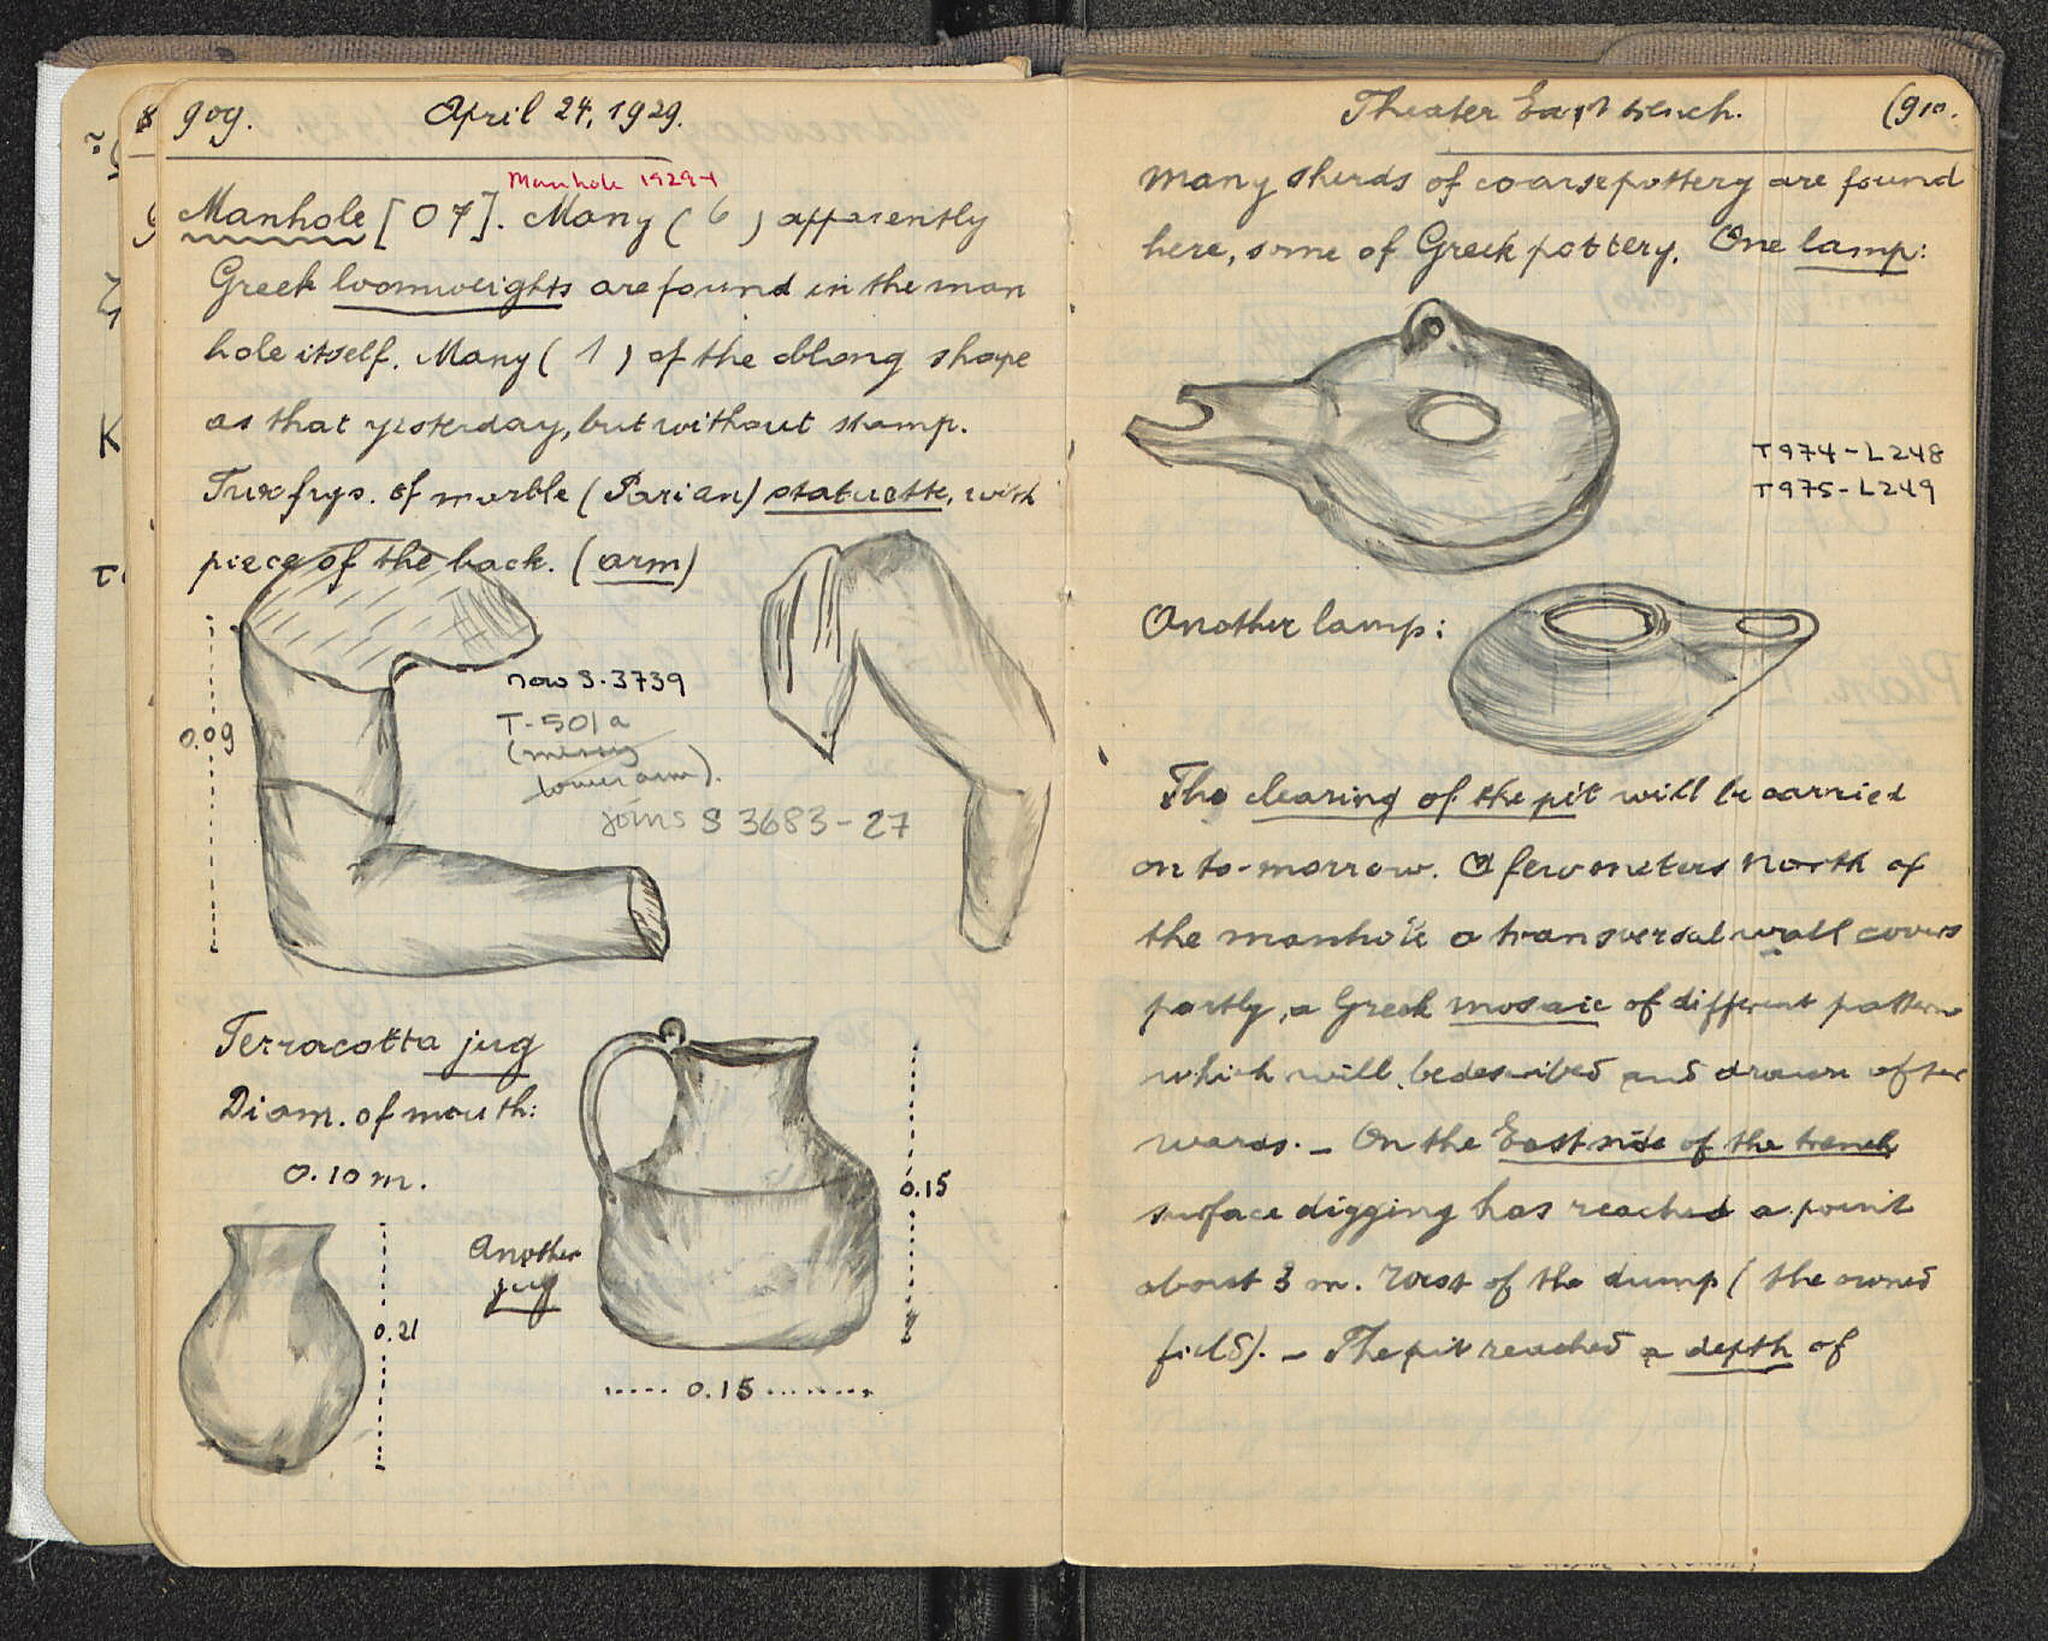 909.
April 24, 1929.
Manhole 1929-1
Manhole [07]. Many (6) apparently
Greek loomweights are found in the man
hole itself. Many (1) of the oblong shape
as that yesterday, but without stamp.
Two frgs. of marble (Parian) statuette, with
piece of the back. (arm)
0.09
now S-3739
T-501a
(missing
lower arm).
joins S 3683-27
Terracotta jug
Diam. of mouth:
0.10 m.
0.21
Another
jug
0.15
0.15
Theater East trench.
(910.
many sherds of coarse pottery are found
here, some of Greek pottery. One lamp:
T974-L248
T975-L249
Another lamp:
The clearing of the pit will be carried
on to-morrow. A few meters North of
the manhole a transversal wall covers
partly, a Greek mosaic of different pattern
which will be described and drawn after
wards. - On the East side of the trench
surface digging has reached a point
about 3 m. West of the dump (the owned
field). - The pit reached a depth of